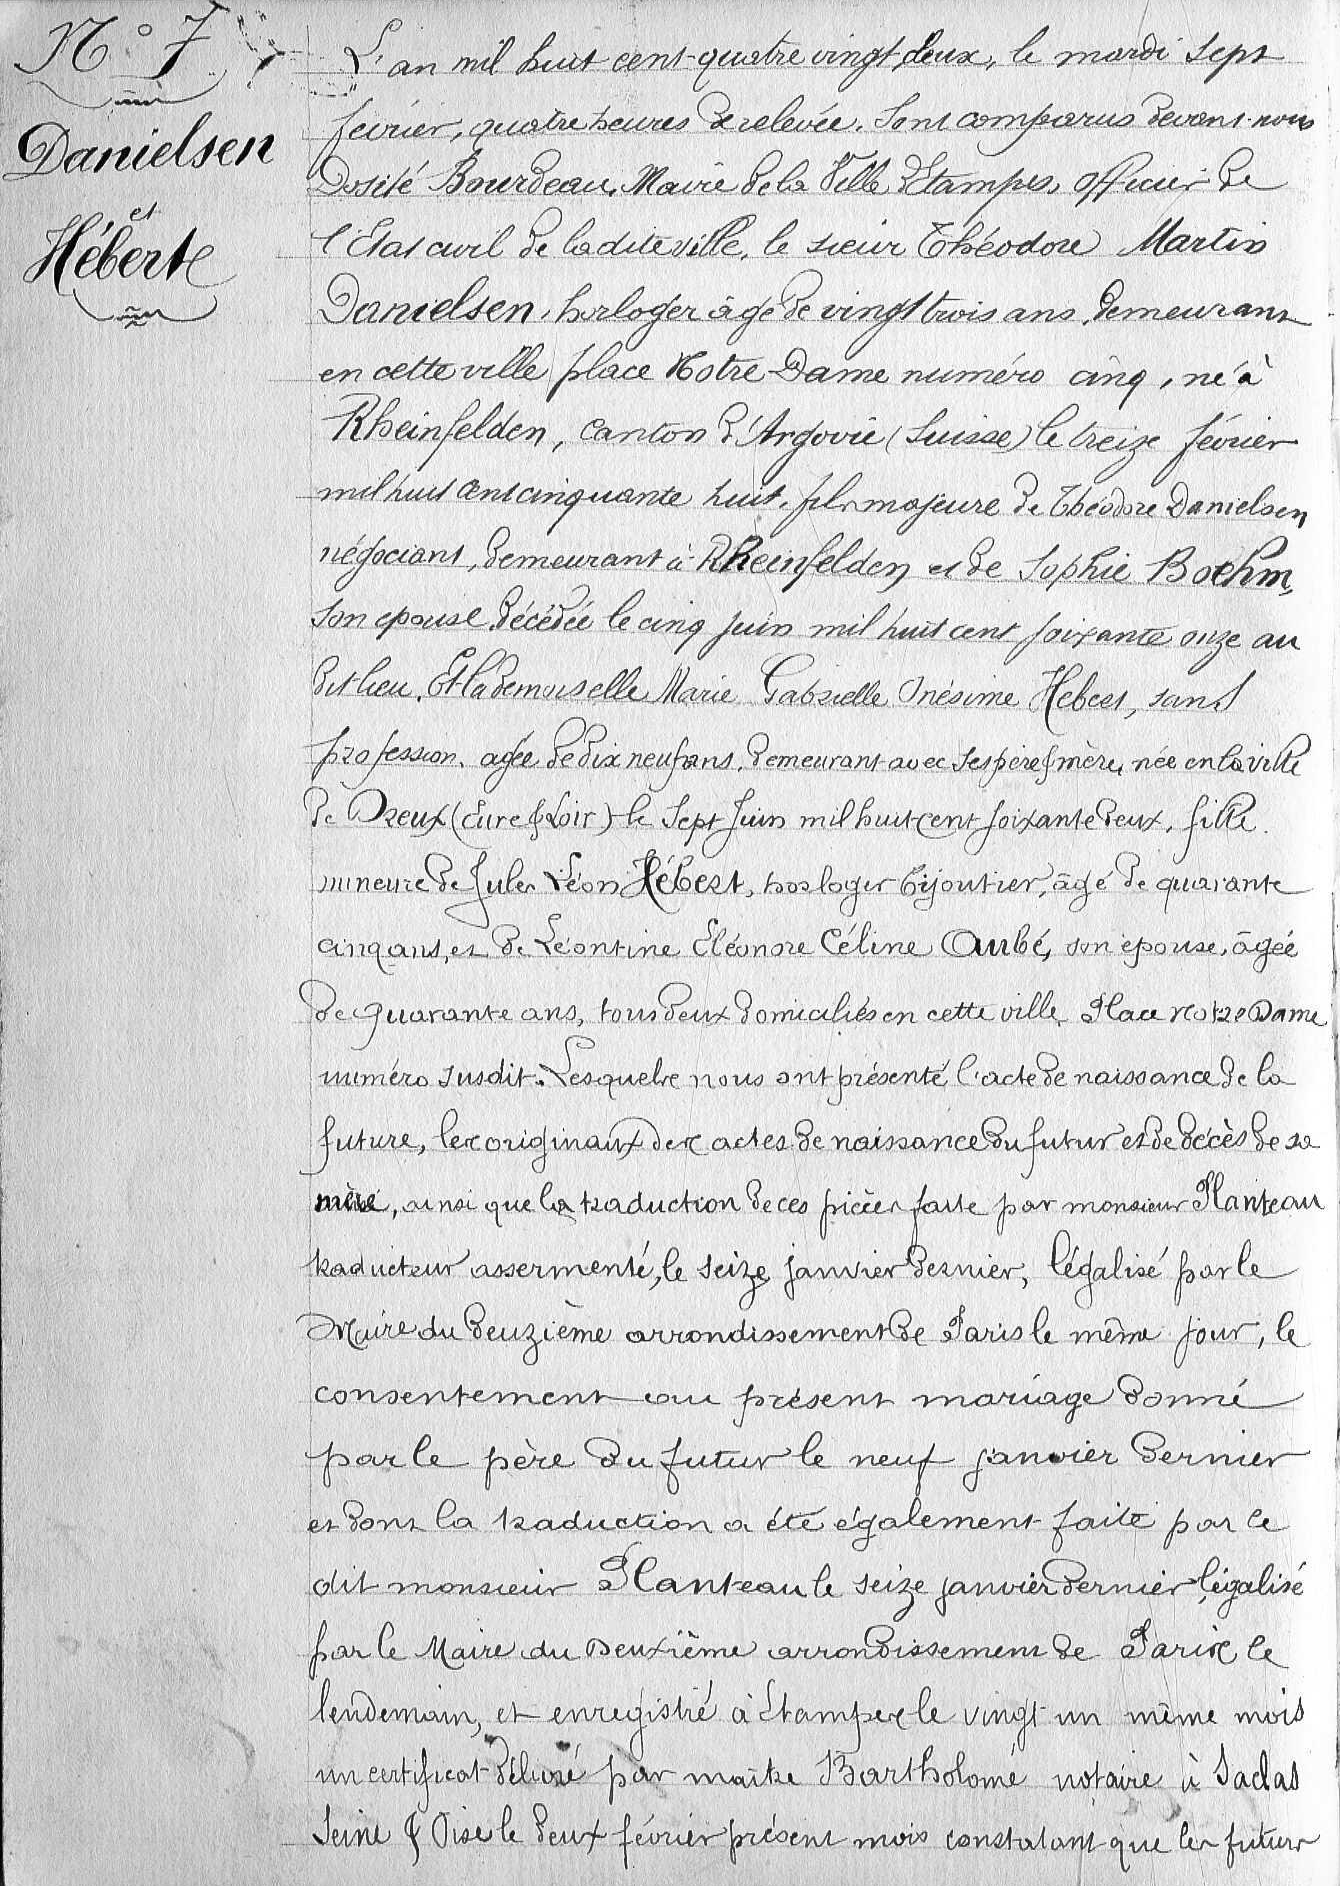 N° 7
Danielsen
et
Hébert
L'an mil huit cent quatre vingt deux, le mardi sept
février, quatre heures de relevée. Sont comparus devant nous
Dosité Bourdeau, Maire de la Ville d'Etampes, officier de
l'Etat civil de ladite ville, le sieur Théodore Martin
Danielsen, horloger âgé de vingt trois ans, demeurant
en cette ville place Notre-Dame numéro cinq, né à
Rheinfelden, canton d'Argovie (Suisse) le treize février
mil huit cent cinquante huit, fils majeure de Théodore Danielsen
négociant, demeurant à Rheinfelden et de Sophie Boehm,
son epouse décédée le cinq juin mil huit cent soixante onze au
dit lieu. Et lademoiselle Marie Gabrielle Onésime Hébert, sans
profession, agée de dix neuf ans, demeurant avec ses père & mère, née en la ville
de Dreux (Eure & Loir) le sept juin mil huit cent soixante deux, fille
mineure de Jules Léon Hébert, horloger bijoutier, âgé de quarante
cinq ans, et de Léontine Eléonore Céline Aubé, son épouse, âgée
de quarante ans, tous deux domiciliés en cette ville Place Notre Dame
numéro susdit. Lesquels nous ont présenté l'acte de naissance de la
future, les originaux des actes de naissance du futur et de décès de sa
mère, ainsi que la traduction de ces pièces faite par monsieur Planteau
traducteur assermenté, le seize janvier dernier, légalisé par le
Maire du deuzième arrondissement de Paris le même jour, le
consentement au présent mariage donné
par le père du futur le neuf janvier dernier
et dont la traduction a été également faite par le
dit monsieur Planteau le seize janvier dernier, légalisé
par le Maire du Deuxième arrondissement de Paris le
lendemain, et enregistré à Etampes le vingt un même mois
un certificat délivré par maître Bartholomé notaire à Saclas
Seine & Oise le deux février présent mois constatant que les futurs